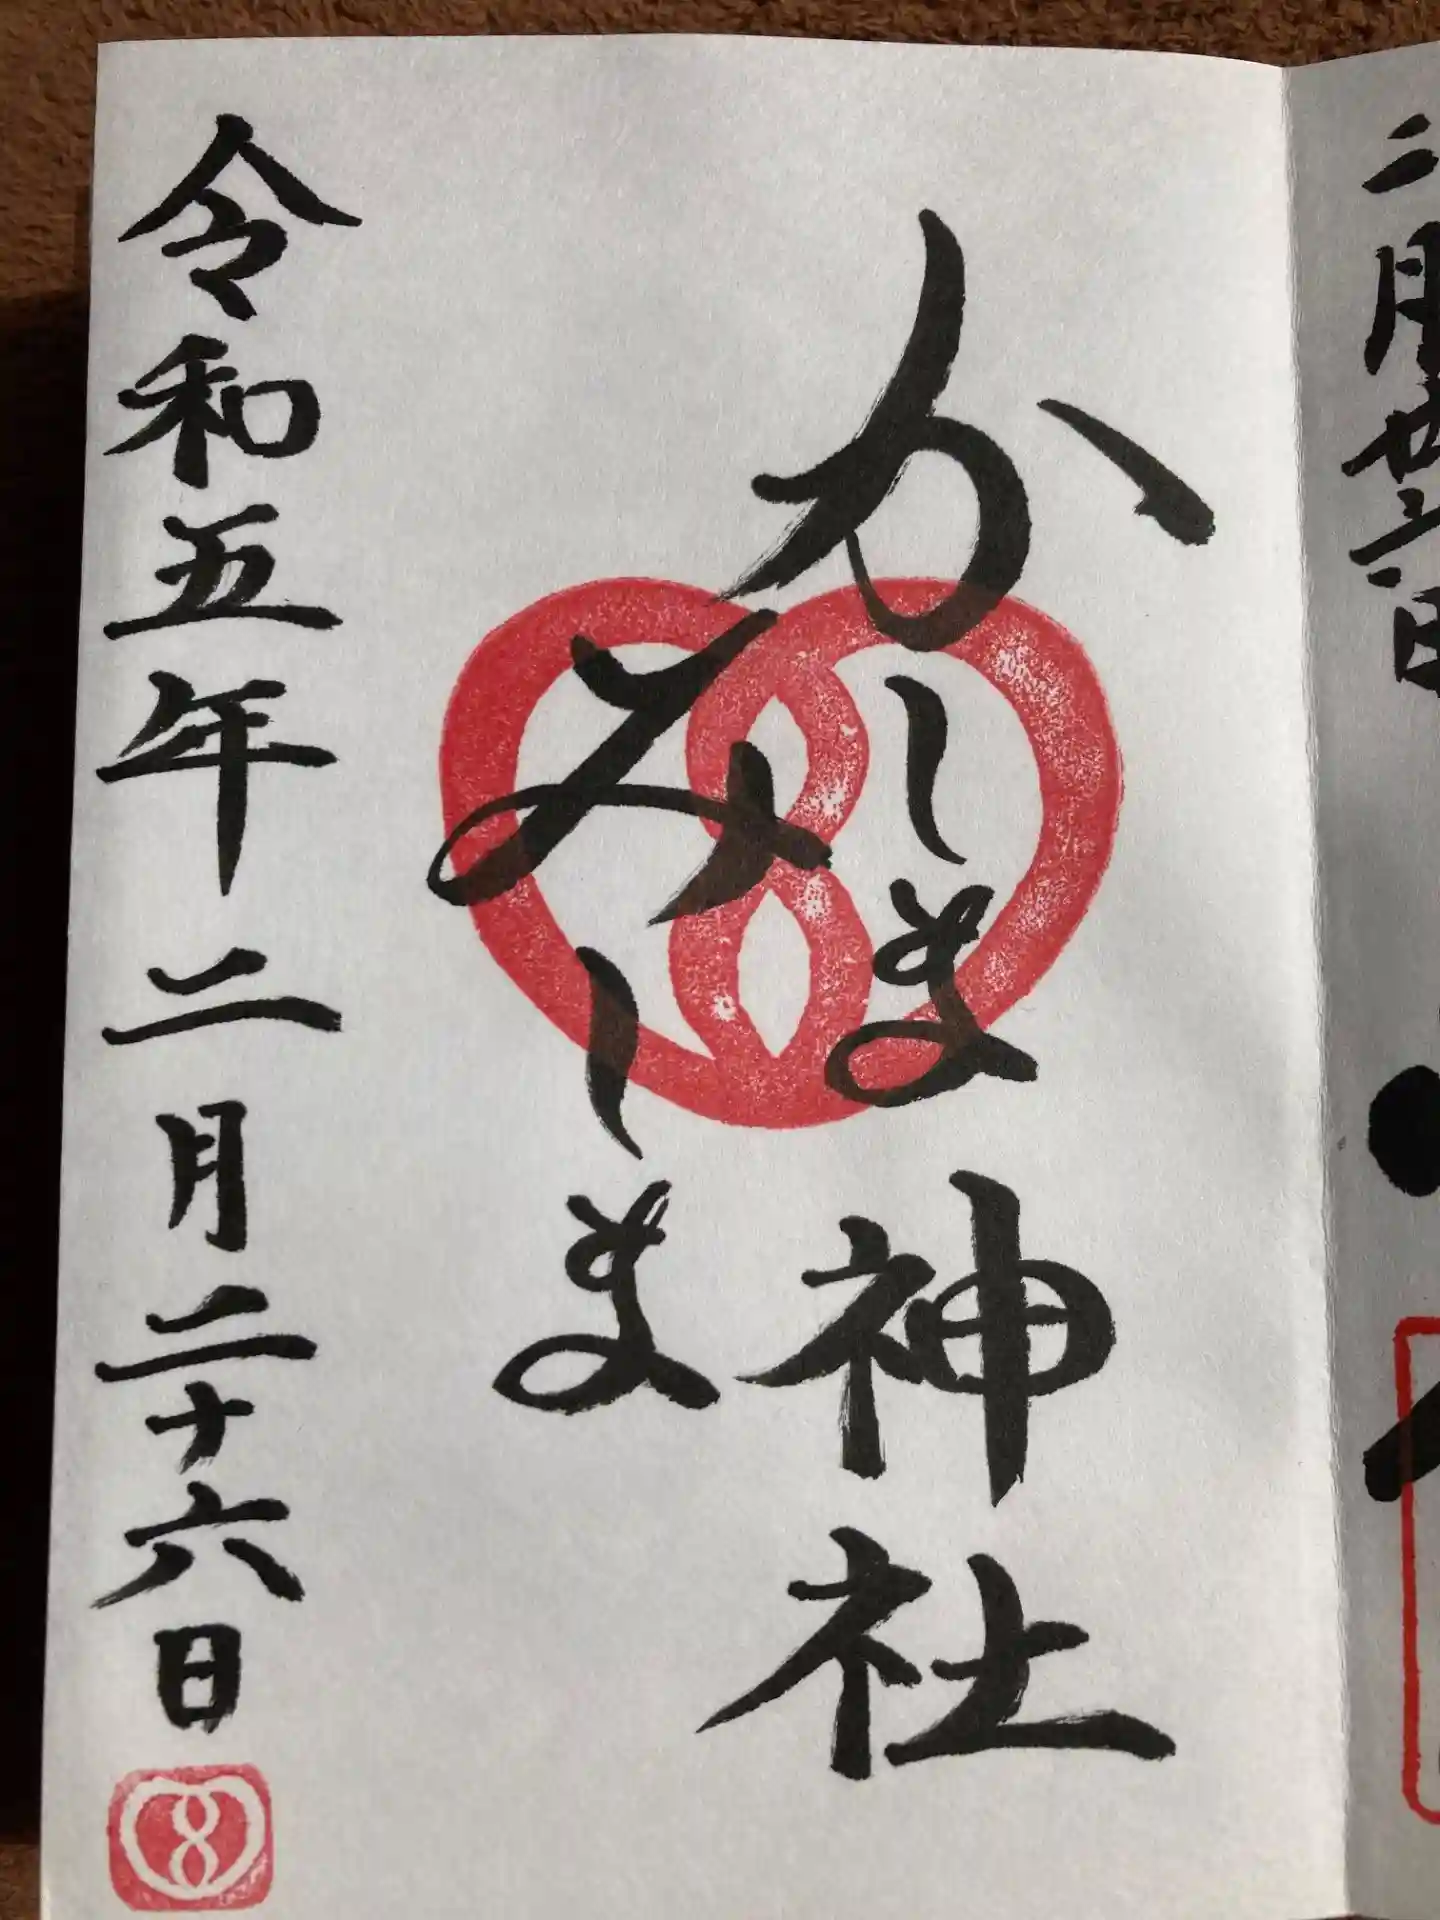 二月
日
かしま神社
みしま
令和五年二月二十六日